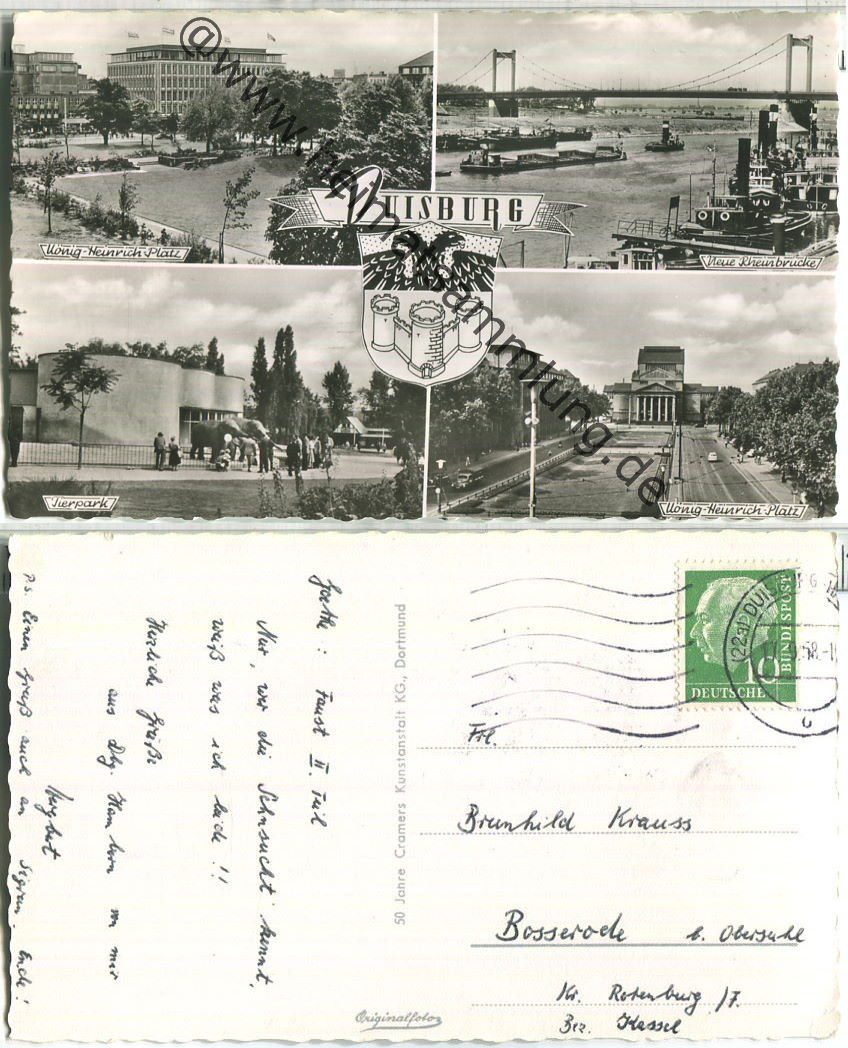 @www.heimatsammlung.de
DUISBURG
König-Heinrich-Platz
Neue Rheinbrücke
Tierpark
König-Heinrich-Platz
Goethe: Faust II. Teil
Nur, wer die Sehnsucht kennt,
weiß was ich leide!!
Herzliche Grüße
aus Dbg. Hamborn von mir
Herbert
P.S. Einen Gruß auch an Sigrun. Ende!
50 Jahre Cramers Kunstanstalt KG., Dortmund
Originalfotos
(22a) DUIS
58
10
DEUTSCHE
BUNDESPOST
Frl.
Brunhild Krauss
Bosserode b. Obersuhl
Kr. Rotenburg /F.
Bez. Kassel